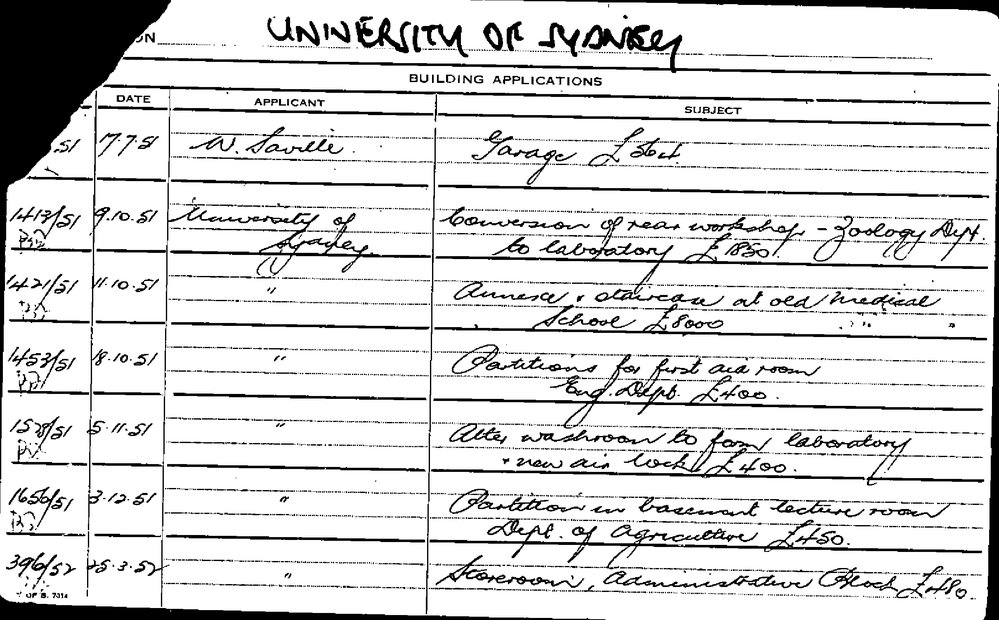 ON UNIVERSITY OF SYDNEY
BUILDING APPLICATIONS
DATE APPLICANT SUBJECT
.51 17.7.51 W. Saville Garage £364
1413/51 9.10.51 University of Conversion of rear workshop - Zoology Dept.
Sydney to laboratory £1850.
1421/51 11.10.51 " Annexe & staircase at old Medical
School £8000 " "
1453/51 18.10.51 " Partitions for first aid room
Eng. Dept. £400.
1578/51 5.11.51 " Alter washroom to form laboratory
& new air lock £400.
1656/51 3.12.51 " Partition in basement lecture room
Dept. of Agriculture £450.
396/52 25.3.52 " Storeroom, Administrative Block £480.
OP S. 7314